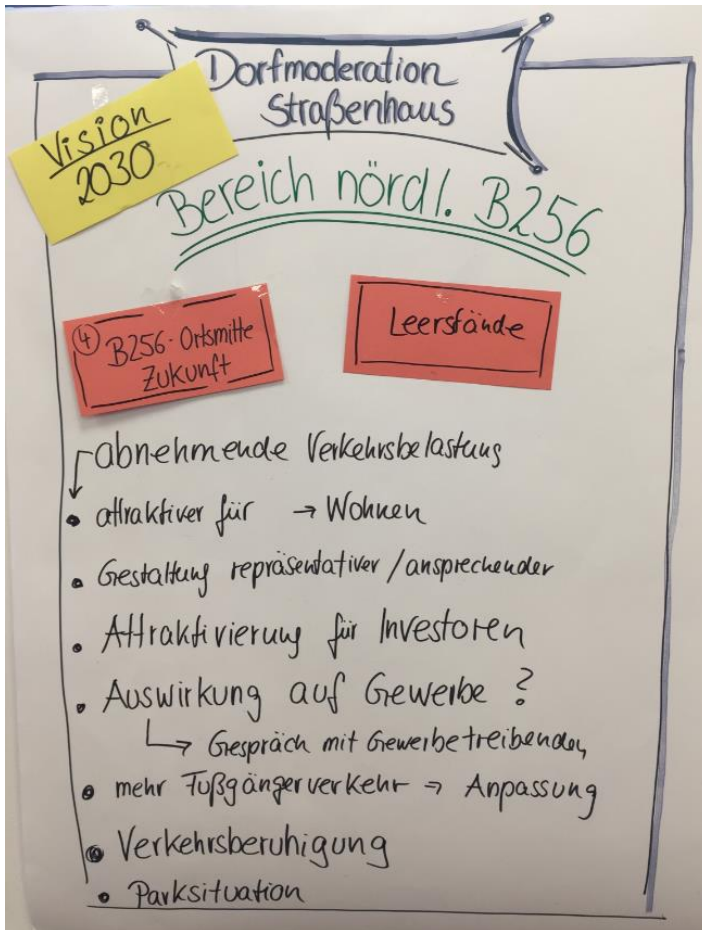 Dorfmoderation
Straßenhaus
Vision
2030
Bereich nördl. B256
④ B256-Ortsmitte
Zukunft
Leerstände
abnehmende Verkehrsbelastung
• attraktiver für → Wohnen
• Gestaltung repräsentativer / ansprechender
• Attraktivierung für Investoren
• Auswirkung auf Gewerbe ?
↳ Gespräch mit Gewerbetreibenden
• mehr Fußgängerverkehr → Anpassung
• Verkehrsberuhigung
• Parksituation